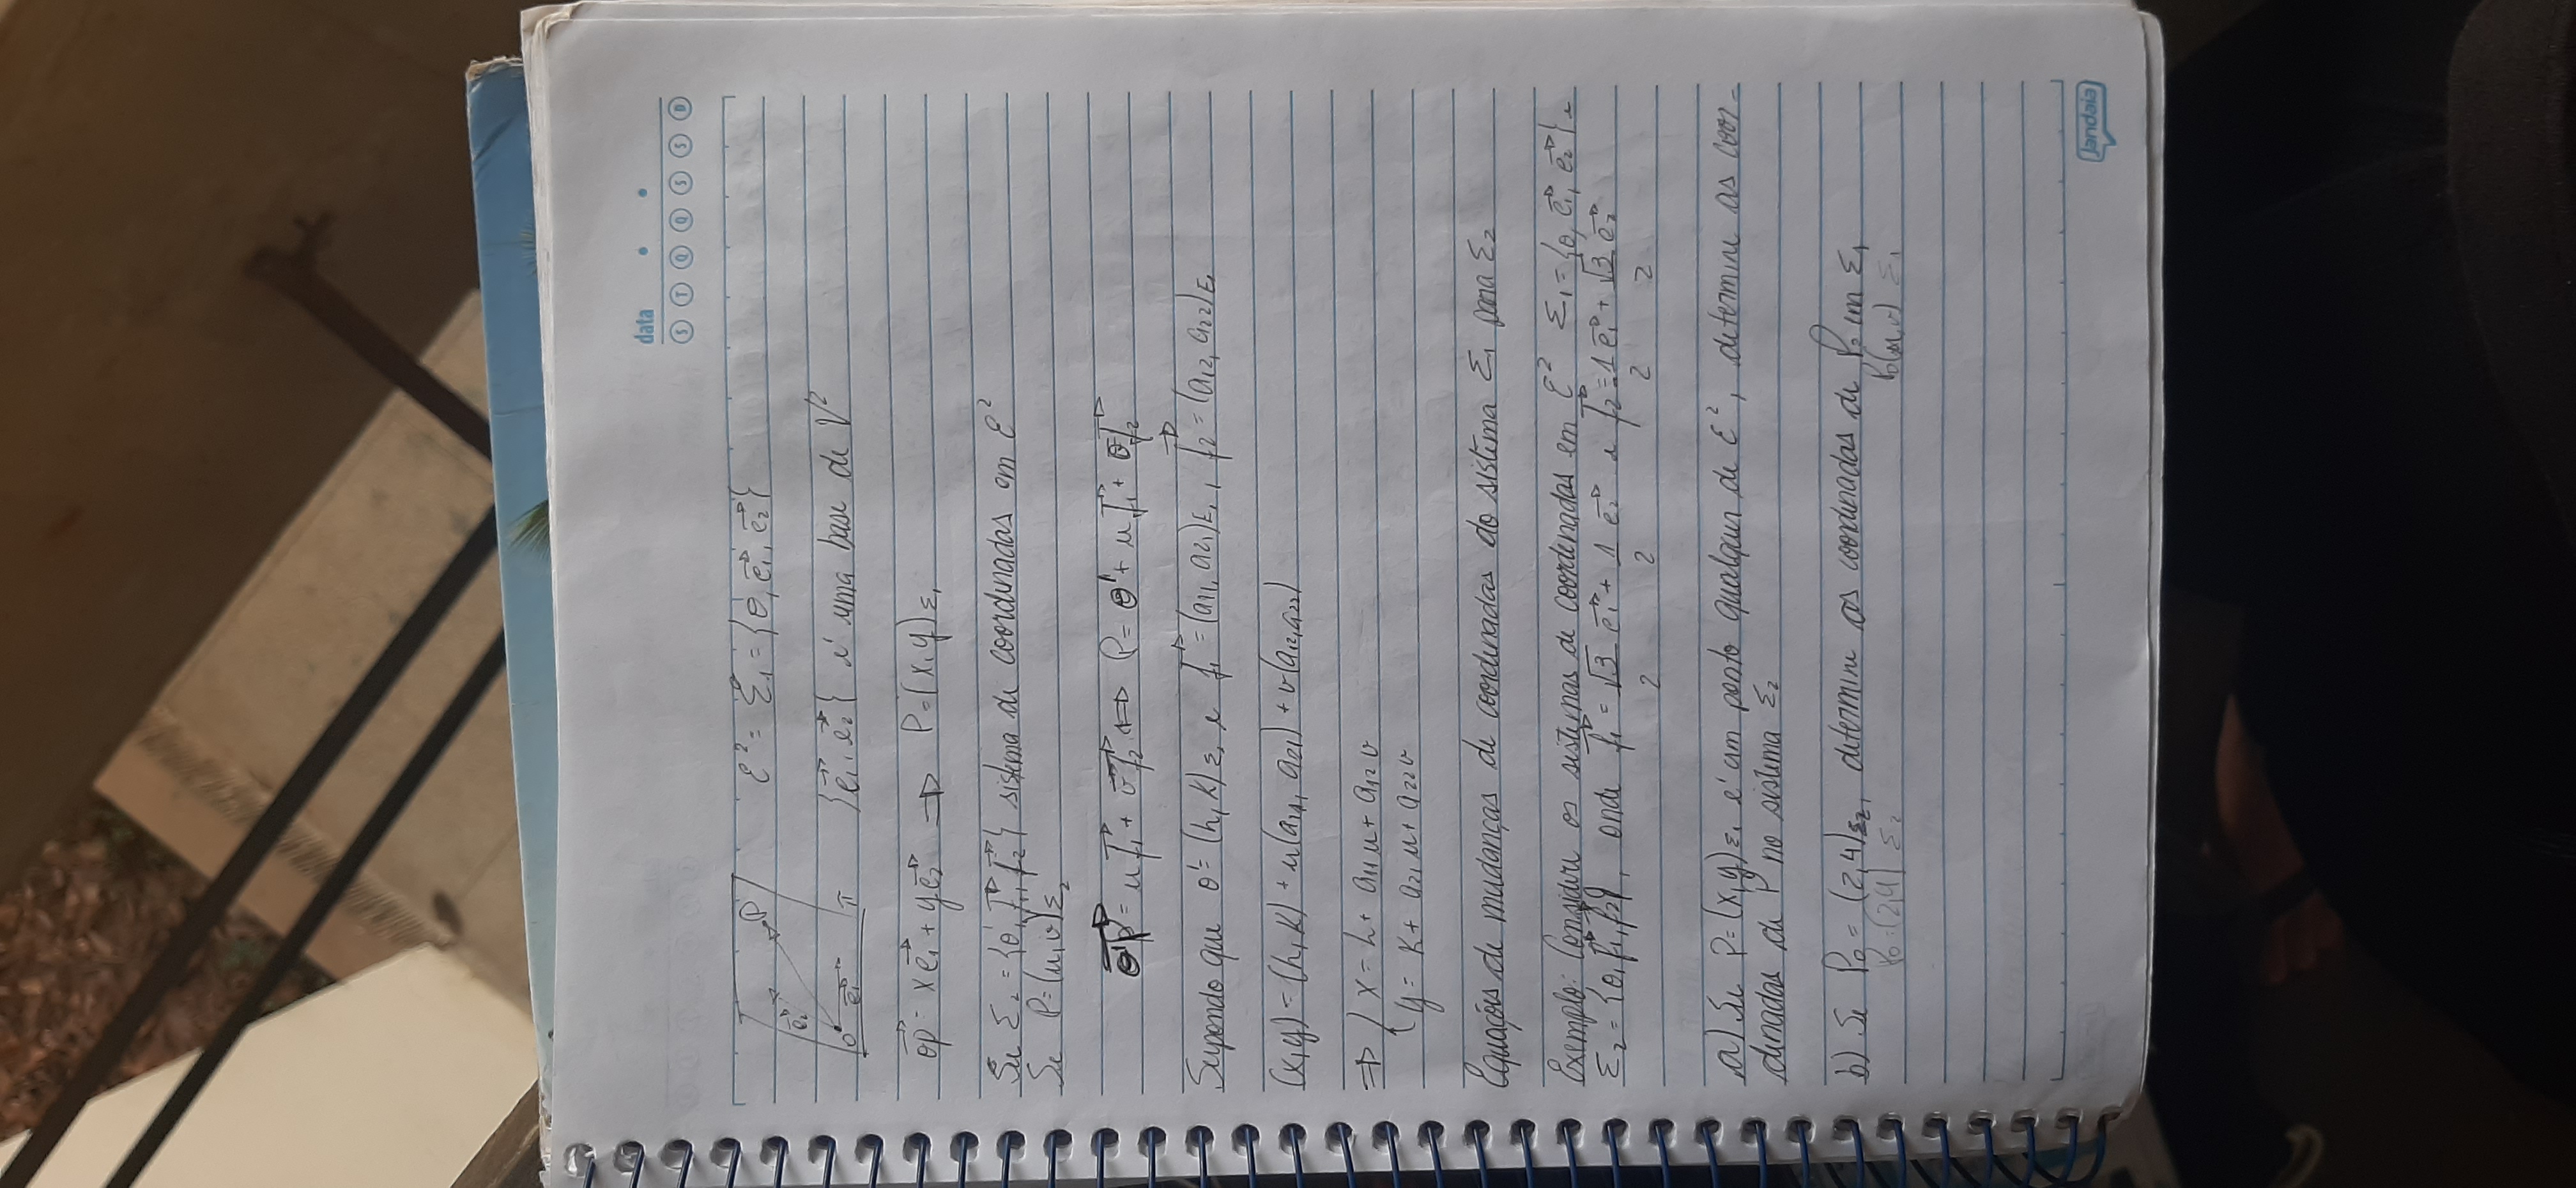 data
S T Q Q S S D
P
e₂
O e₁ π
ε² = Σ₁ = {O, e₁, e₂}
{e₁, e₂} é uma base de V²
OP = xe₁ + ye₂ ⇒ P = (x, y)Σ₁
Se Σ₂ = {O', f₁, f₂} sistema de coordenadas em ε²
Se P = (u, v)Σ₂
O'P = uf₁ + vf₂ ⇔ P = O' + uf₁ + vf₂
Supondo que O' = (h, k)Σ₁ e f₁ = (a₁₁, a₂₁)E₁, f₂ = (a₁₂, a₂₂)E₁
(x, y) = (h, k) + u(a₁₁, a₂₁) + v(a₁₂, a₂₂)
⇒ { x = h + a₁₁u + a₁₂v
y = k + a₂₁u + a₂₂v
Equações de mudanças de coordenadas do sistema Σ₁ para Σ₂
Exemplo: Considere os sistemas de coordenadas em ε² Σ₁ = {O, e₁, e₂} e
Σ₂ = {O, f₁, f₂}, onde f₁ = √3/2 e₁ + 1/2 e₂ e f₂ = 1/2 e₁ + √3/2 e₂
a) Se P = (x, y)Σ₁ é um ponto qualquer de ε², determine as coor-
denadas de P no sistema Σ₂
b) Se P₀ = (2, 4)Σ₂, determine as coordenadas de P₀ em Σ₁
P₀ = (2, 4) Σ₂ P₀(u, v) Σ₁
Jandaia